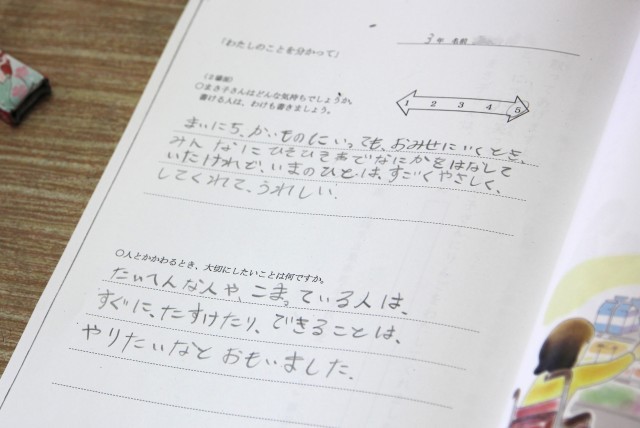 「わたしのことを分かって」
3年 名前
（2場面）
○まさ子さんはどんな気持ちでしょうか。
書ける人は、わけも書きましょう。
1 2 3 4 5
まいにち、かいものにいっても、おみせにいくとき、
みんなにひそひそあでなにかをはなして
いたけれど、いまのひとは、すごくやさしく、
してくれて、うれしい。
○人とかかわるとき、大切にしたいことは何ですか。
たいへんな人や、こまっている人は、
すぐに、たすけたり、できることは、
やりたいなとおもいました。